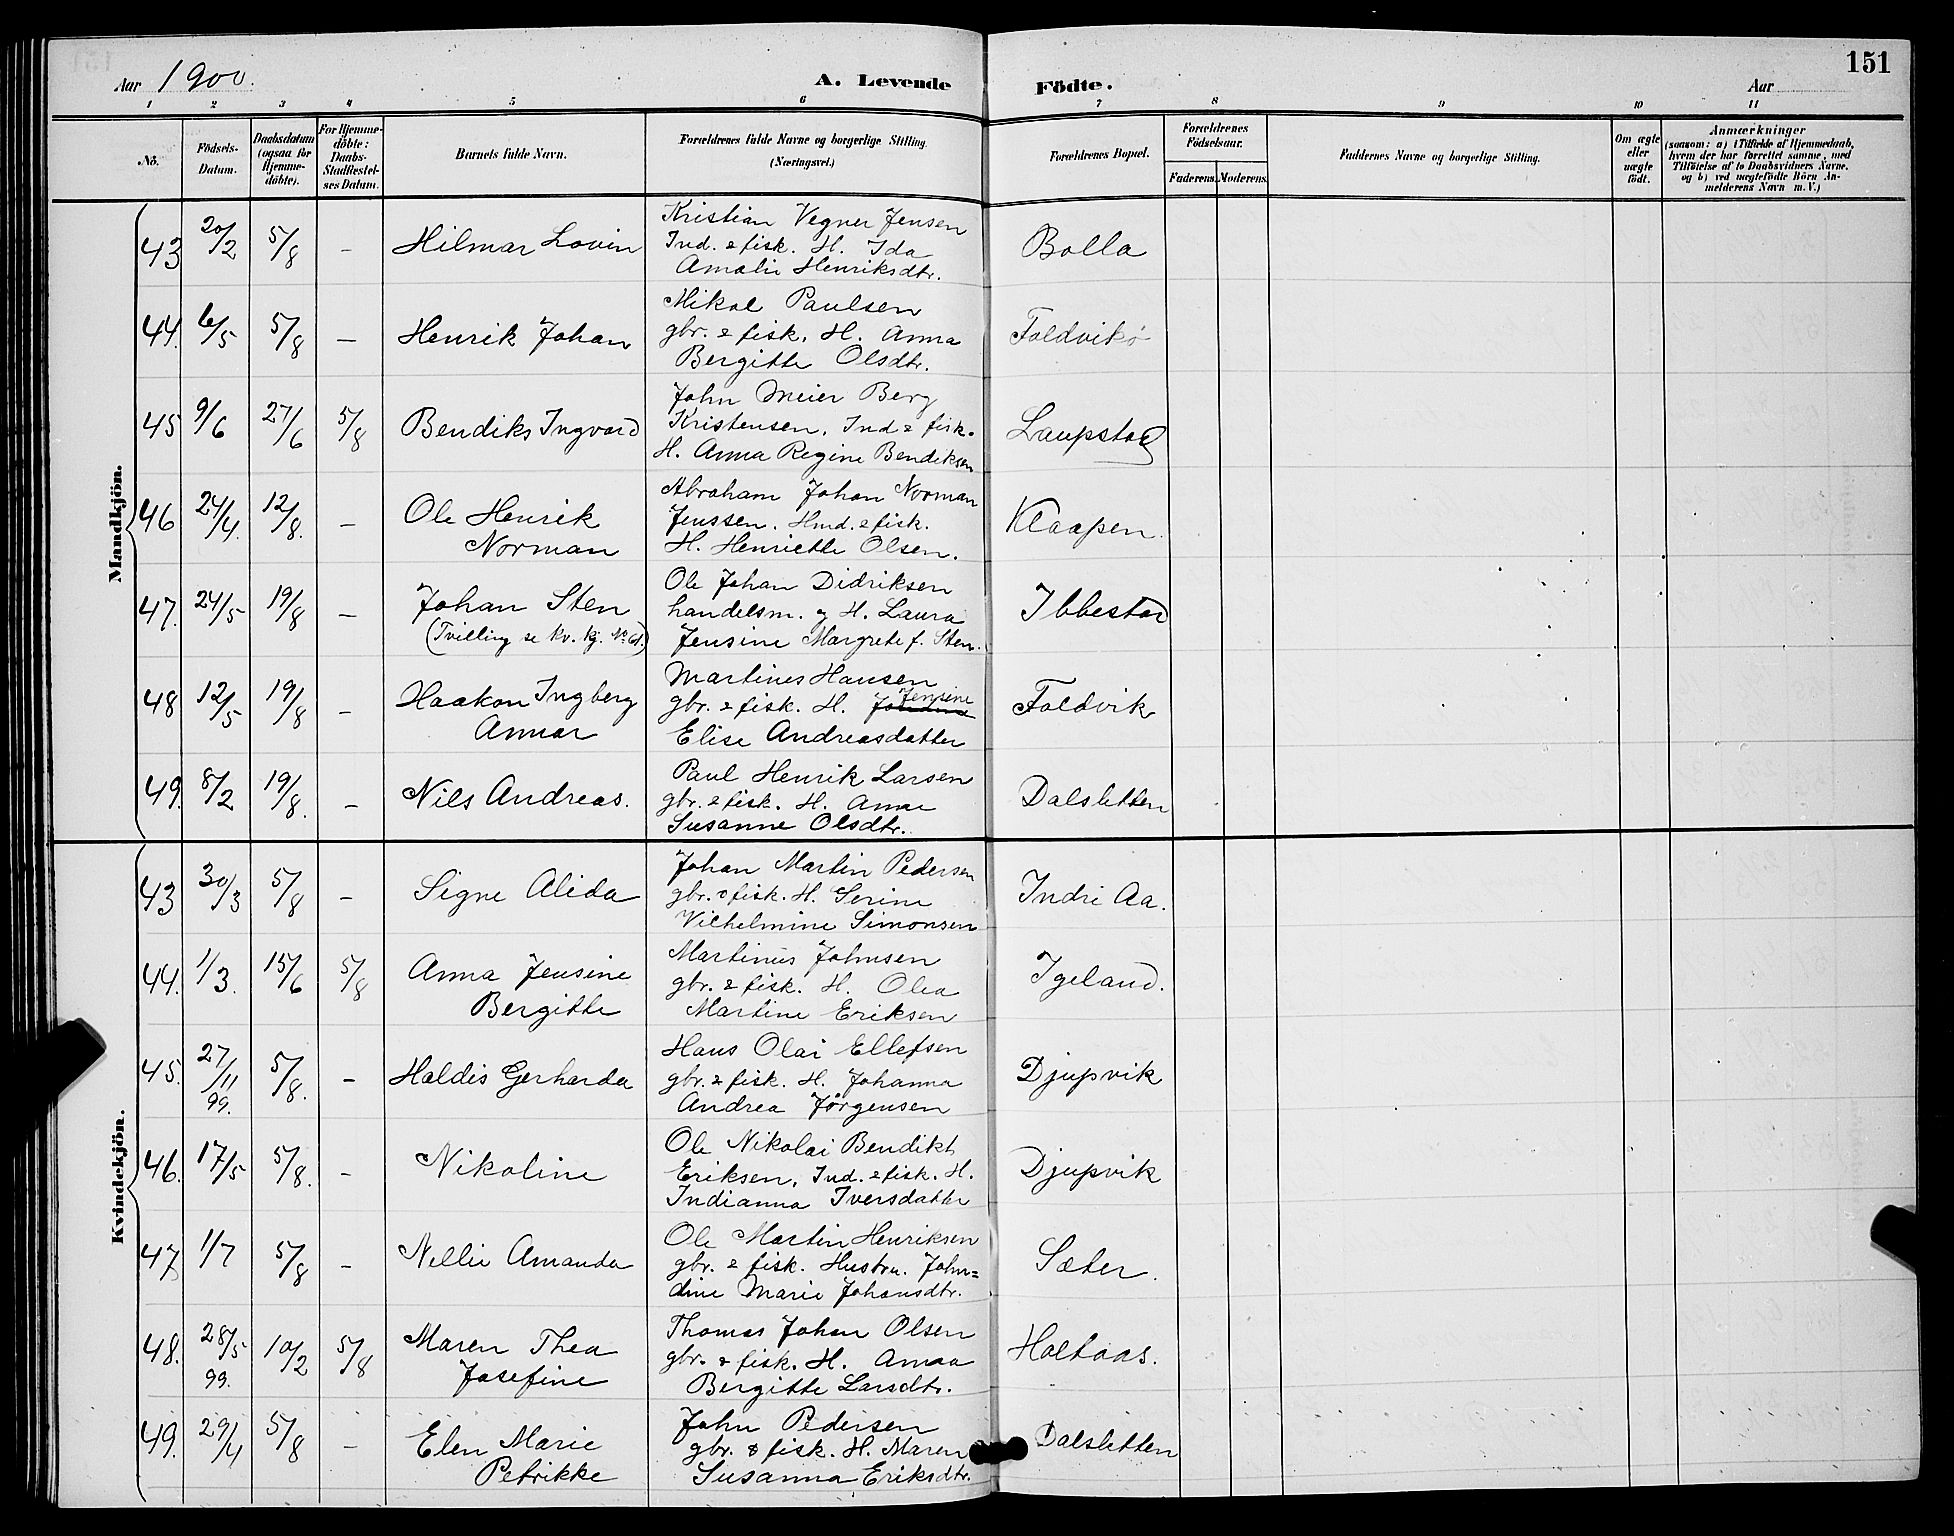 151
Aar 1900.
A. Levende Födte.
Aar
1 2 3 4 5 6 7 8 9 10 11
No.
Födsels-Datum.
Daabsdatum (ogsaa for Hjemme-döbte).
For Hjemme-döbte: Daabs-Stadfæstel-ses Datum.
Barnets fulde Navn.
Forældrenes fulde Navne og borgerlige Stilling.
(Næringsvei.)
Forældrenes Bopæl.
Forældrenes Födselsaar.
Faderens. Moderens.
Faddernes Navne og borgerlige Stilling.
Om ægte eller uægte födt.
Anmærkninger
(saasom: a) i Tilfælde af Hjemmedaab,
hvem der har forrettet samme, med
Tilföielse af to Daabsvidners Navne.
og b) ved uægtefödte Börn An-
melderens Navn m. V.)
Mandkjön.
43 20/2 5/8 - Hilmar Lovin
Kristian Vegner Jensen
Ind. & fisk. H. Ida
Amalie Henriksdtr.
Bolla
44. 6/5 5/8 - Henrik Johan
Mikal Paulsen
gbr. & fisk. H. Anna
Bergitte Olsdtr.
Foldvikø
45 9/6 27/6 5/8 Bendiks Ingvard
John Meier Berg
Kristensen, Ind & fisk.
H. Anna Regine Bendiksen
Laupstad
46 24/4. 12/8. - Ole Henrik
Norman
Abraham Johan Norman
Jenssen. Hmd. & fisk.
H. Henriette Olsen.
Klaapen.
47. 24/5 19/8 - Johan Sten
(Tvilling se kv. kj. No. 61.)
Ole Johan Didriksen
handelsm. og H. Laura
Jensine Margrete f. Sten.
Ibbestad
48 12/5 19/8 - Haakon Ingberg
Annar
Martines Hansen
gbr. & fisk. H. Jensine
Elise Andreasdatter
Foldvik
49. 8/2 19/8. - Nils Andreas.
Paul Henrik Larsen
gbr. & fisk. H. Anne
Susanne Olsdtr.
Dalsletten
Kvindekjön.
43 30/3 5/8 - Signe Alida
Johan Martin Pedersen
gbr. & fisk. H. Serine
Vilhelmine Simonsen
Indri Aa.
44. 1/3. 15/6 5/8 Anna Jensine
Bergitte
Martinus Johnsen
gbr. & fisk. H. Olea
Martine Eriksen
Igeland.
45. 27/11 99. 5/8. - Haldis Gerharda
Hans Olai Ellefsen
gbr. & fisk. H. Johanna
Andrea Jørgensen
Djupvik
46. 17/5 5/8. - Nikoline
Ole Nikolai Bendikt
Eriksen, Ind. & fisk. H.
Indianna Iversdatter
Djupvik
47. 1/7 5/8 - Nellie Amanda
Ole Martin Henriksen
gbr. & fisk. Hustru. John=
dine Marie Johansdtr.
Sæter.
48. 28/5 99. 10/2 5/8 Maren Thea
Josefine
Thomas Johan Olsen
gbr. & fisk. H. Anna
Bergitte Larsdtr.
Holtaas.
49. 29/4 5/8 - Elen Marie
Petrikke
John Pedersen
gbr. & fisk. H. Maren
Susanna Eriksdtr.
Dalsletten